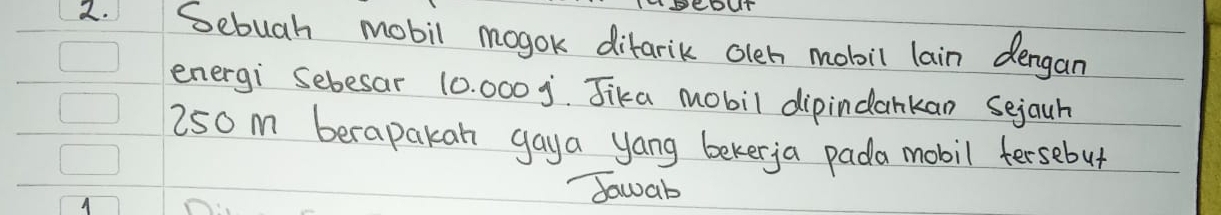 2. Sebuah mobil mogok ditarik oleh mobil lain dengan
energi sebesar 10.000 j. Jika mobil dipindahkan sejauh
250 m berapakah gaya yang bekerja pada mobil tersebut
Jawab
1